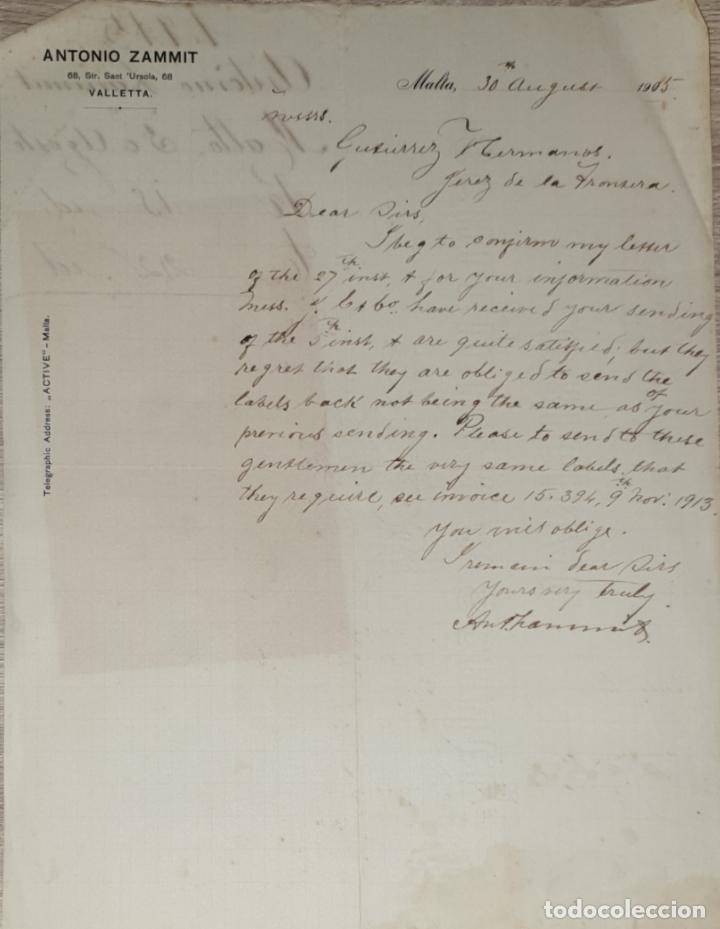 ANTONIO ZAMMIT
68, Str. Sant 'Ursola, 68
VALLETTA.
Malta, 30th August 1915
Messrs.
Gutierrez Hermanos.
Jerez de la Fronsera.
Dear Sirs,
I beg to confirm my letter
of the 27th inst, & for your information
Mess. J. C & Co. have received your sending
of the 5th inst, & are quite satisfied; but they
regret that they are obliged to send the
labels back not being the same as of your
previous sending. Please to send to these
gentlemen the very same labels that
they require, see invoice 15.394, 9th Nov: 1913.
You will oblige.
I remain dear Sirs
Yours very truly.
Ant Zammit
Telegraphic Address: „ACTIVE" - Malta.
todocoleccion